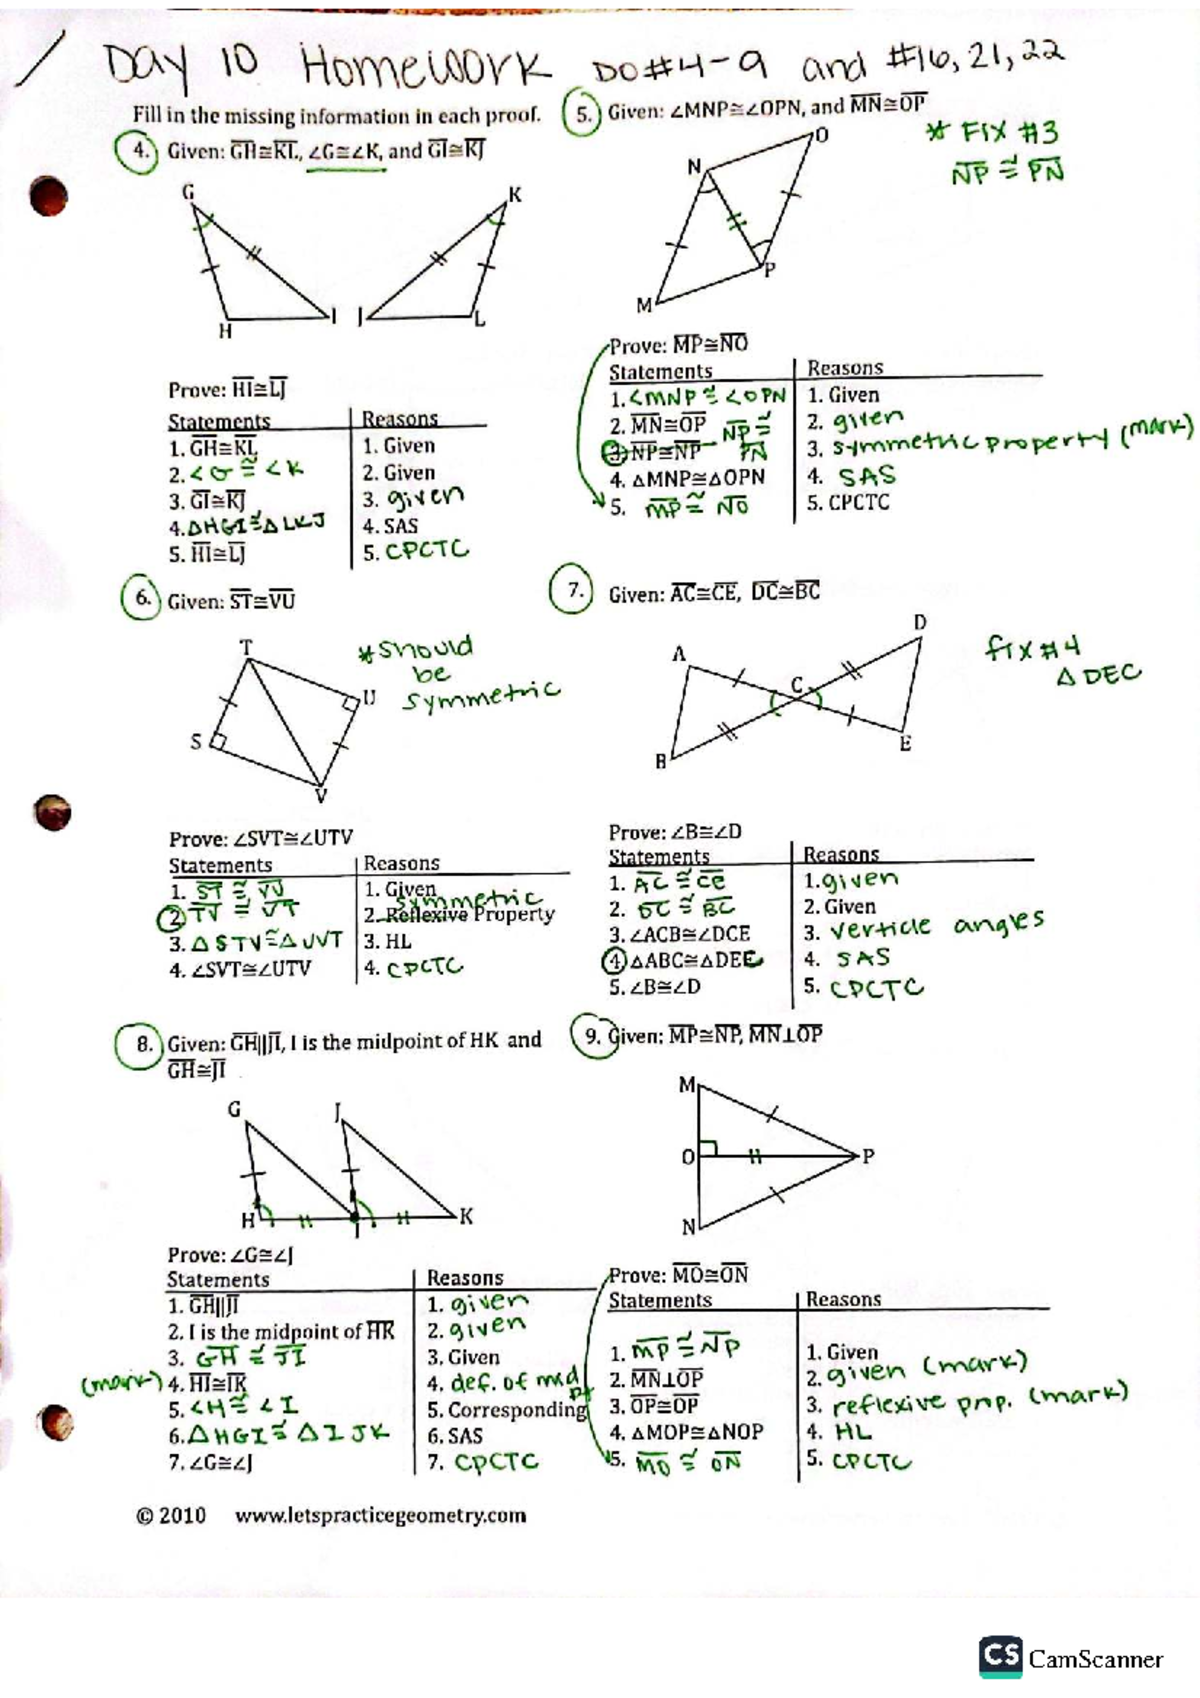 Day 10 Homework Do #4-9 and #16, 21, 22
Fill in the missing information in each proof.
4. Given: GH≅KL, ∠G≅∠K, and GI≅KJ
G
K
H
I
J
L
Prove: HI≅LJ
Statements Reasons
1. GH≅KL 1. Given
2. ∠G ≅ ∠K 2. Given
3. GI≅KJ 3. given
4. ΔHGI≅ΔLKJ 4. SAS
5. HI≅LJ 5. CPCTC
5. Given: ∠MNP≅∠OPN, and MN≅OP
* FIX #3
NP ≅ PN
O
N
P
M
Prove: MP≅NO
Statements Reasons
1. ∠MNP ≅ ∠OPN 1. Given
2. MN≅OP 2. given
3. NP≅NP NP ≅ PN 3. symmetric property (mark)
4. ΔMNP≅ΔOPN 4. SAS
5. MP ≅ NO 5. CPCTC
6. Given: ST≅VU
* should
be
symmetric
T
U
S
V
Prove: ∠SVT≅∠UTV
Statements Reasons
1. ST ≅ VU 1. Given
symmetric
2. TV ≅ VT 2. Reflexive Property
3. ΔSTV≅ΔUVT 3. HL
4. ∠SVT≅∠UTV 4. CPCTC
7. Given: AC≅CE, DC≅BC
fix #4
ΔDEC
D
A
C
B
E
Prove: ∠B≅∠D
Statements Reasons
1. AC ≅ CE 1. given
2. DC ≅ BC 2. Given
3. ∠ACB≅∠DCE 3. verticle angles
4. ΔABC≅ΔDEC 4. SAS
5. ∠B≅∠D 5. CPCTC
8. Given: GH||JI, I is the midpoint of HK and
GH≅JI
G
J
H
I
K
Prove: ∠G≅∠J
Statements Reasons
1. GH||JI 1. given
2. I is the midpoint of HK 2. given
3. GH ≅ JI 3. Given
(mark) 4. HI≅IK 4. def. of mid pt
5. ∠H ≅ ∠I 5. Corresponding
6. ΔHGI ≅ ΔIJK 6. SAS
7. ∠G≅∠J 7. CPCTC
9. Given: MP≅NP, MN⊥OP
M
O
P
N
Prove: MO≅ON
Statements Reasons
1. MP ≅ NP 1. Given
2. MN⊥OP 2. given (mark)
3. OP≅OP 3. reflexive prop. (mark)
4. ΔMOP≅ΔNOP 4. HL
5. MO ≅ ON 5. CPCTC
© 2010 www.letspracticegeometry.com
CS CamScanner